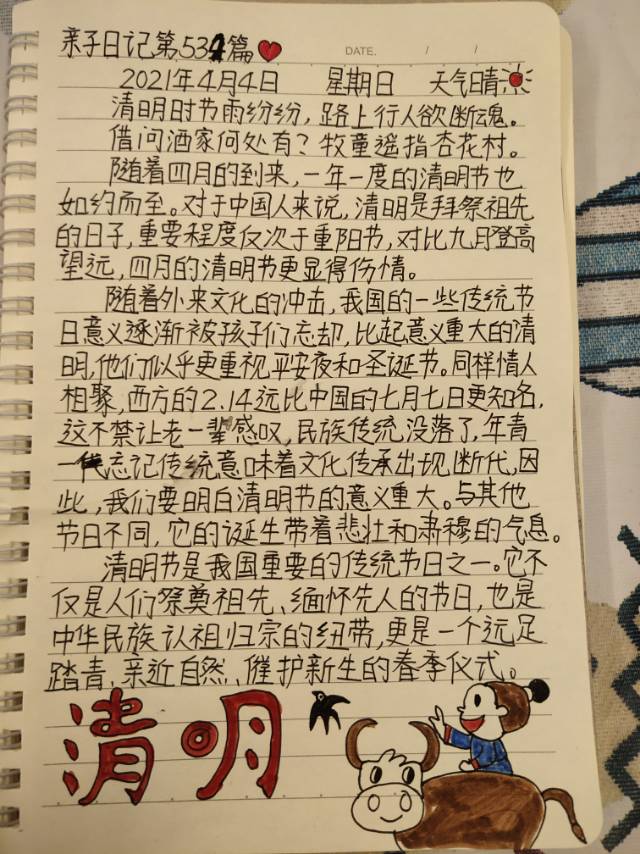 亲子日记第534篇
DATE. / /
2021年4月4日 星期日 天气晴
清明时节雨纷纷，路上行人欲断魂。
借问酒家何处有？牧童遥指杏花村。
随着四月的到来，一年一度的清明节也
如约而至。对于中国人来说，清明是拜祭祖先
的日子，重要程度仅次于重阳节，对比九月登高
望远，四月的清明节更显得伤情。
随着外来文化的冲击，我国的一些传统节
日意义逐渐被孩子们忘却，比起意义重大的清
明，他们似乎更重视平安夜和圣诞节。同样情人
相聚，西方的2.14远比中国的七月七日更知名，
这不禁让老一辈感叹，民族传统没落了，年青
一代忘记传统意味着文化传承出现断代，因
此，我们要明白清明节的意义重大。与其他
节日不同，它的诞生带着悲壮和肃穆的气息。
清明节是我国重要的传统节日之一。它不
仅是人们祭奠祖先、缅怀先人的节日，也是
中华民族认祖归宗的纽带，更是一个远足
踏青、亲近自然、催护新生的春季仪式。
清明